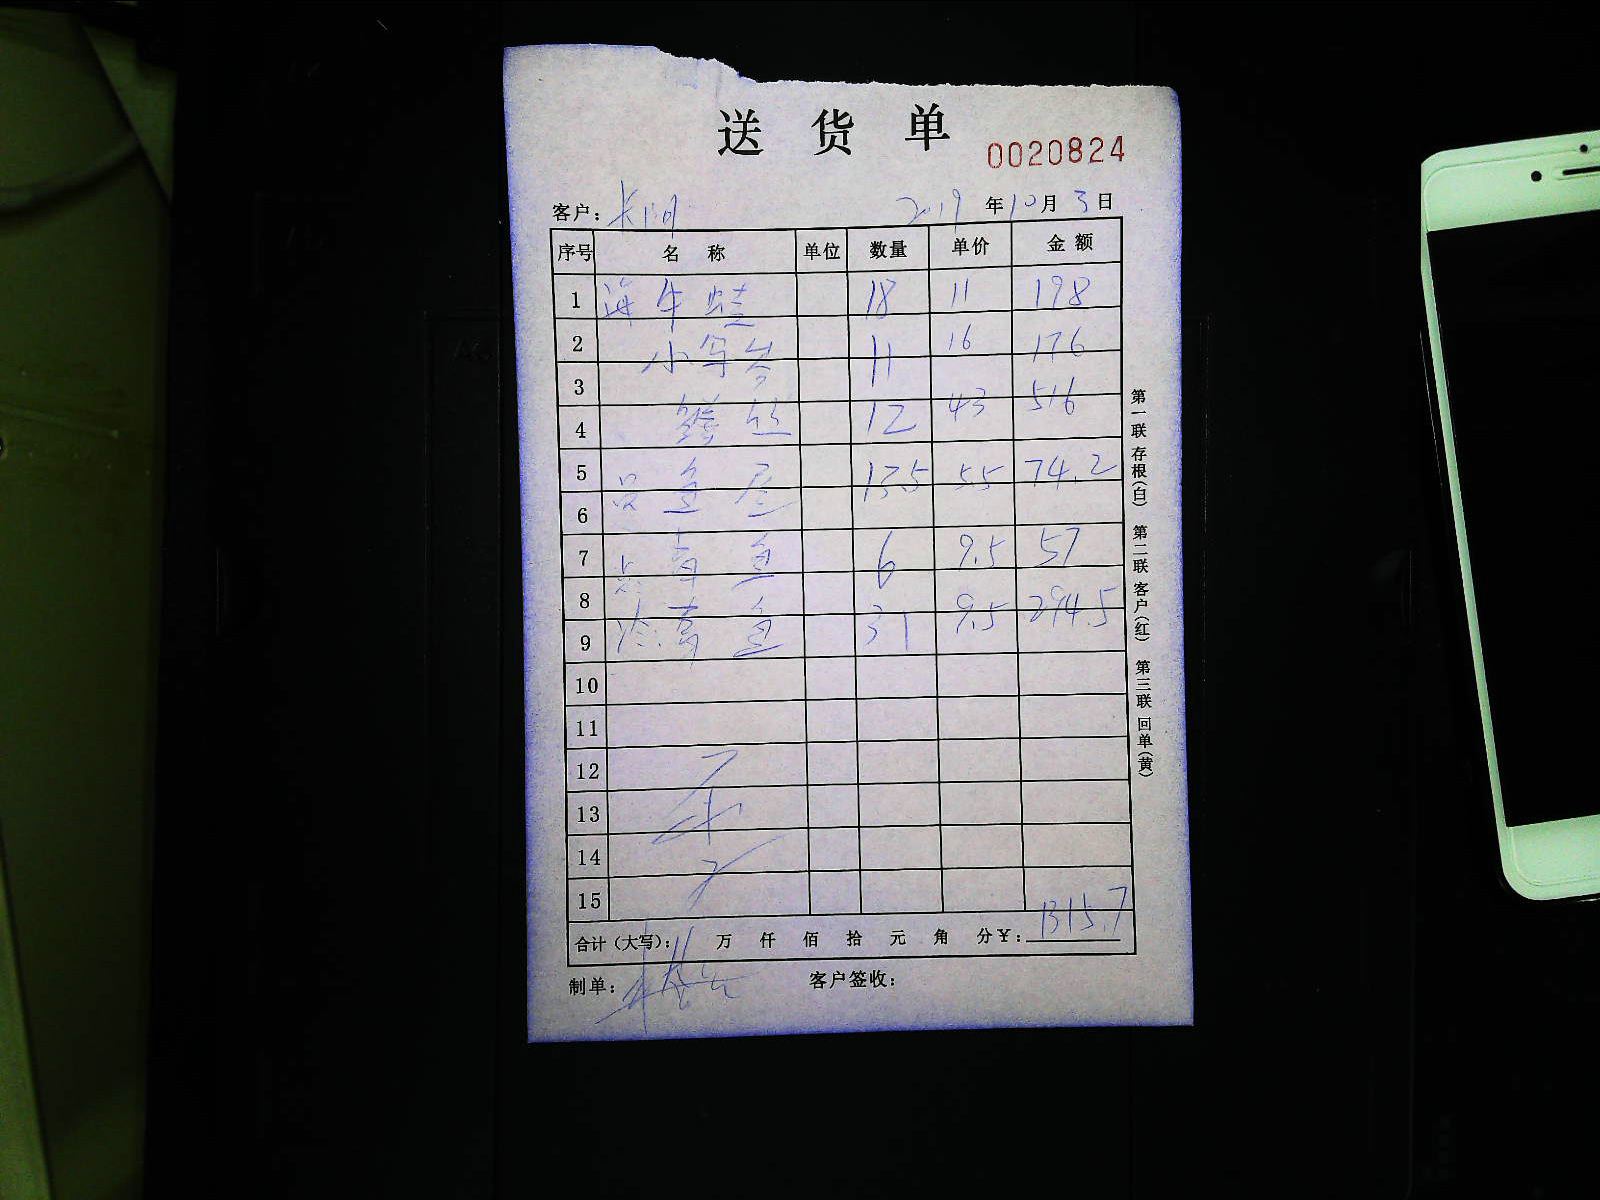 送货单
0020824
客户: 2019年10月3日
序号 名称 单位 数量 单价 金额
1 海牛蛙 18 11 198
2 小 11 16 176
3
4 鳝丝 12 43 516
5 鱼 13.5 5.5 74.2
6
7 鱼 6 9.5 57
8
9 鱼 31 9.5 294.5
10
11
12
13
14
15
合计(大写): 万 仟 佰 拾 元 角 分¥: 1315.7
制单: 客户签收:
第一联 存根(白) 第二联 客户(红) 第三联 回单(黄)